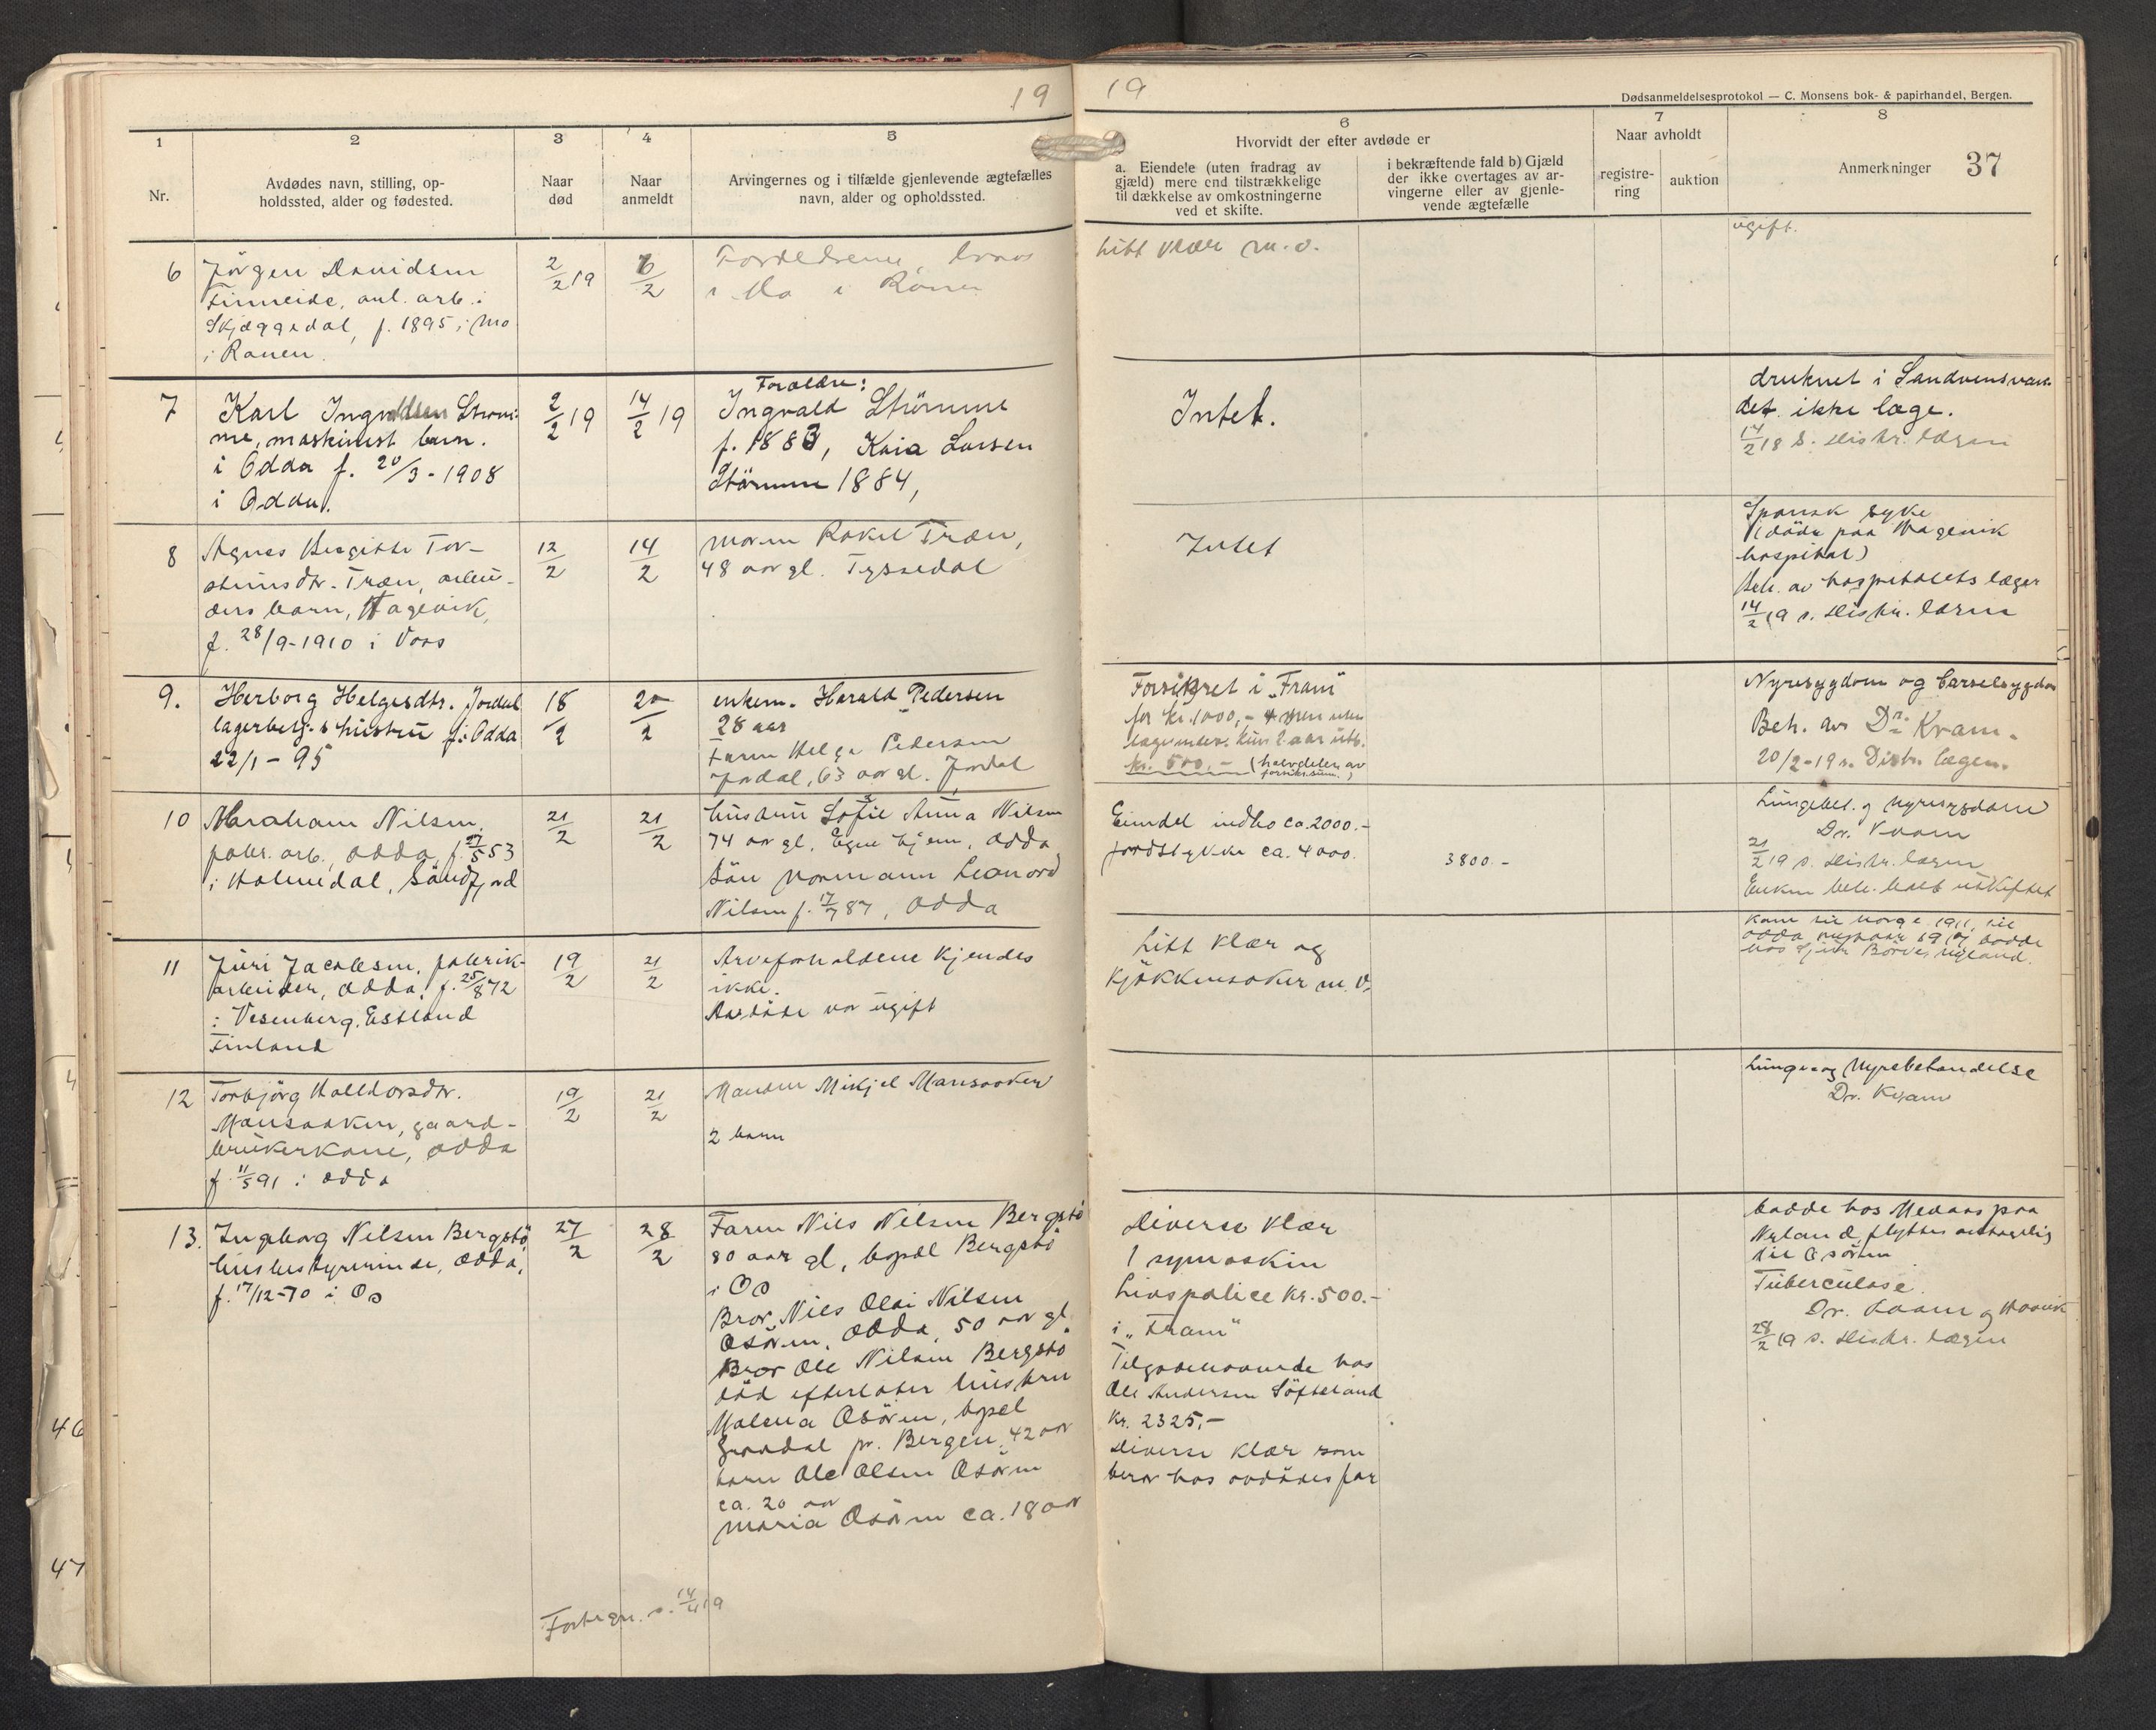 19
1
2
3
4
5
Nr.
Avdødes navn, stilling, op-
holdssted, alder og fødested.
Naar
død
Naar
anmeldt
Arvingernes og i tilfælde gjenlevende ægtefælles
navn, alder og opholdssted.
6
Jörgen Davidsen
Finneide, anl. arb. i
Skjæggedal, f. 1895 i Mo
i Ranen.
2/2 19
6/2
Forældrene,
i Mo i Ranen
7
Karl Ingvaldsen Ström-
me, maskinist barn.
i Odda f. 20/3-1908
i Odda.
2/2 19
14/2 19
Forældre:
Ingvald Strömme
f. 1883, Kaia Larsen
Strömme 1884,
8
Agnes Bergitte Tor-
steinsdtr. Træen, arbei-
ders barn, Hagevik,
f. 28/9-1910 i Voss
12/2
14/2
Moren Rakel Træen,
48 aar gl. Tyssedal
9.
Herborg Helgesdtr. Jordal
lagerbetj.s hustru f. i Odda
22/1-95
18/2
20/2
enkem. Harald Pedersen
28 aar
Faren Helge Pedersen
Jordal, 63 aar gl. Jordal
10
Abraham Nilsen,
fabr. arb., Odda, f. 27/5 53
i Holmedal, Söndfjord
21/2
21/2
hustru Sofie Anna Nilsen
74 aar gl, Egne hjem, Odda
Sön Normann Leonord
Nilsen f. 17/7 87, Odda
11
Jüri Jacobsen, fabrik-
arbeider, Odda, f. 25/8 72
i Vesenberg, Estland
Finland
19/2
21/2
Arveforholdene kjendes
ikke.
Avdöde var ugift
12
Torbjörg Halldorsdtr.
Mansaaken, gaard-
brukerkone, Odda
f. 11/5 91 i Odda
19/2
21/2
Manden Mikjel Mansaaken
2 barn
13.
Ingeborg Nilsen Bergstö
husbestyrerinde, Odda,
f. 17/12-70 i Os
27/2
28/2
Faren Nils Nilsen Bergstö
80 aar gl, bopæl Bergstö
i Os
Bror Nils Olai Nilsen
Osören, Odda, 50 aar gl.
Bror Ole Nilsen Bergstö
död efterlater hustru
Malena Osören, bopel
pr. Bergen, 42 aar
barn Ole Olsen Osören
ca. 20 aar
Maria Osören ca. 18 aar
Forbegr. s. 14/4 19
19
Dødsanmeldelsesprotokol — C. Monsens bok- & papirhandel, Bergen.
6
7
8
Hvorvidt der efter avdøde er
Naar avholdt
a. Eiendele (uten fradrag av
gjæld) mere end tilstrækkelige
til dækkelse av omkostningerne
ved et skifte.
i bekræftende fald b) Gjæld
der ikke overtages av ar-
vingerne eller av gjenle-
vende ægtefælle
registre-
ring
auktion
Anmerkninger
37
Litt klær m.v.
ugift.
Intet.
druknet i Sandvensvan-
det. ikke læge.
14/2 18 s. Distr. lægen
Intet
Spansk syke
(döde paa Hagevik
hospital)
Beh. av hospitalets læger
14/2 19 s. Distr. lægen
Forsikret i „Fram“
for kr. 1000,- men uten
lægeunders. kun 2 aar utb.
kr. 500,- (halvdelen av
forsikr.sum.)
Nyresygdom og barselsygdom
Beh. av Dr. Kvam.
20/2-19 s. Distr. lægen.
Eiendel indbo ca. 2000.-
Jordstykke ca. 4000.
3800.-
Lungebet. og nyresygdom
Dr. Kvam
21/2 19 s. Distr. lægen
Enken uskiftet
Litt klær og
kjökkensaker m.v.
Kom til Norge 1911, til
Odda 19 , bodde
hos
Lunge og Nyrebetændelse
Dr. Kvam
Diverse klær
1 symaskin
Livspolice Kr. 500.-
i „Fram“
Tilgodehavende hos
Ole Andersen Söfteland
Kr. 2325,-
Diverse klær som
beror hos avdödes far
bodde hos paa
Nyland, flyttet
til Osören
Tuberculose.
Dr. Kvam og
28/2 19 s. Distr. lægen
46
47